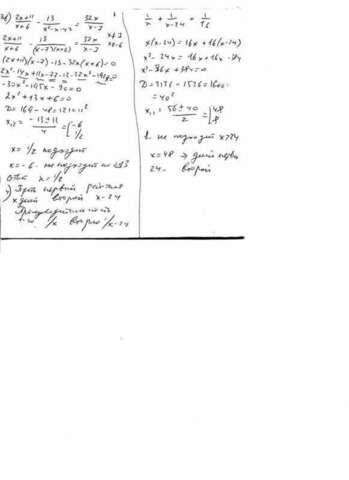 3б) (2x+11)/(x+6) - 13/(x²-x-42) = 32x/(x-7)
(2x+11)/(x+6) - 13/((x-7)(x+6)) = 32x/(x-7) x≠7 x≠-6
(2x+11)(x-7)-13-32x(x+6)=0
2x²-14x+11x-77-13-32x²-192x=0
-30x²-195x-90=0
2x²+13x+6=0
D=169-48=121=11²
x₁,₂ = (-13±11)/4 = [-6 ½
x=½ подходит
x=-6 - не подходит по ОДЗ
Ответ x=½
Пусть первый
x дней второй x-24
Производительность
1/x второго 1/x-24
1/x + 1/(x-24) = 1/16
x(x-24)=16x+16(x-24)
x²-24x=16x+16x-384
x²-56x+384=0
D=3136-1536=1600=
=40²
x₁,₂ = (56±40)/2 = [48 8
8 не подходит x>24
x=48 → дней первый
24 - второй